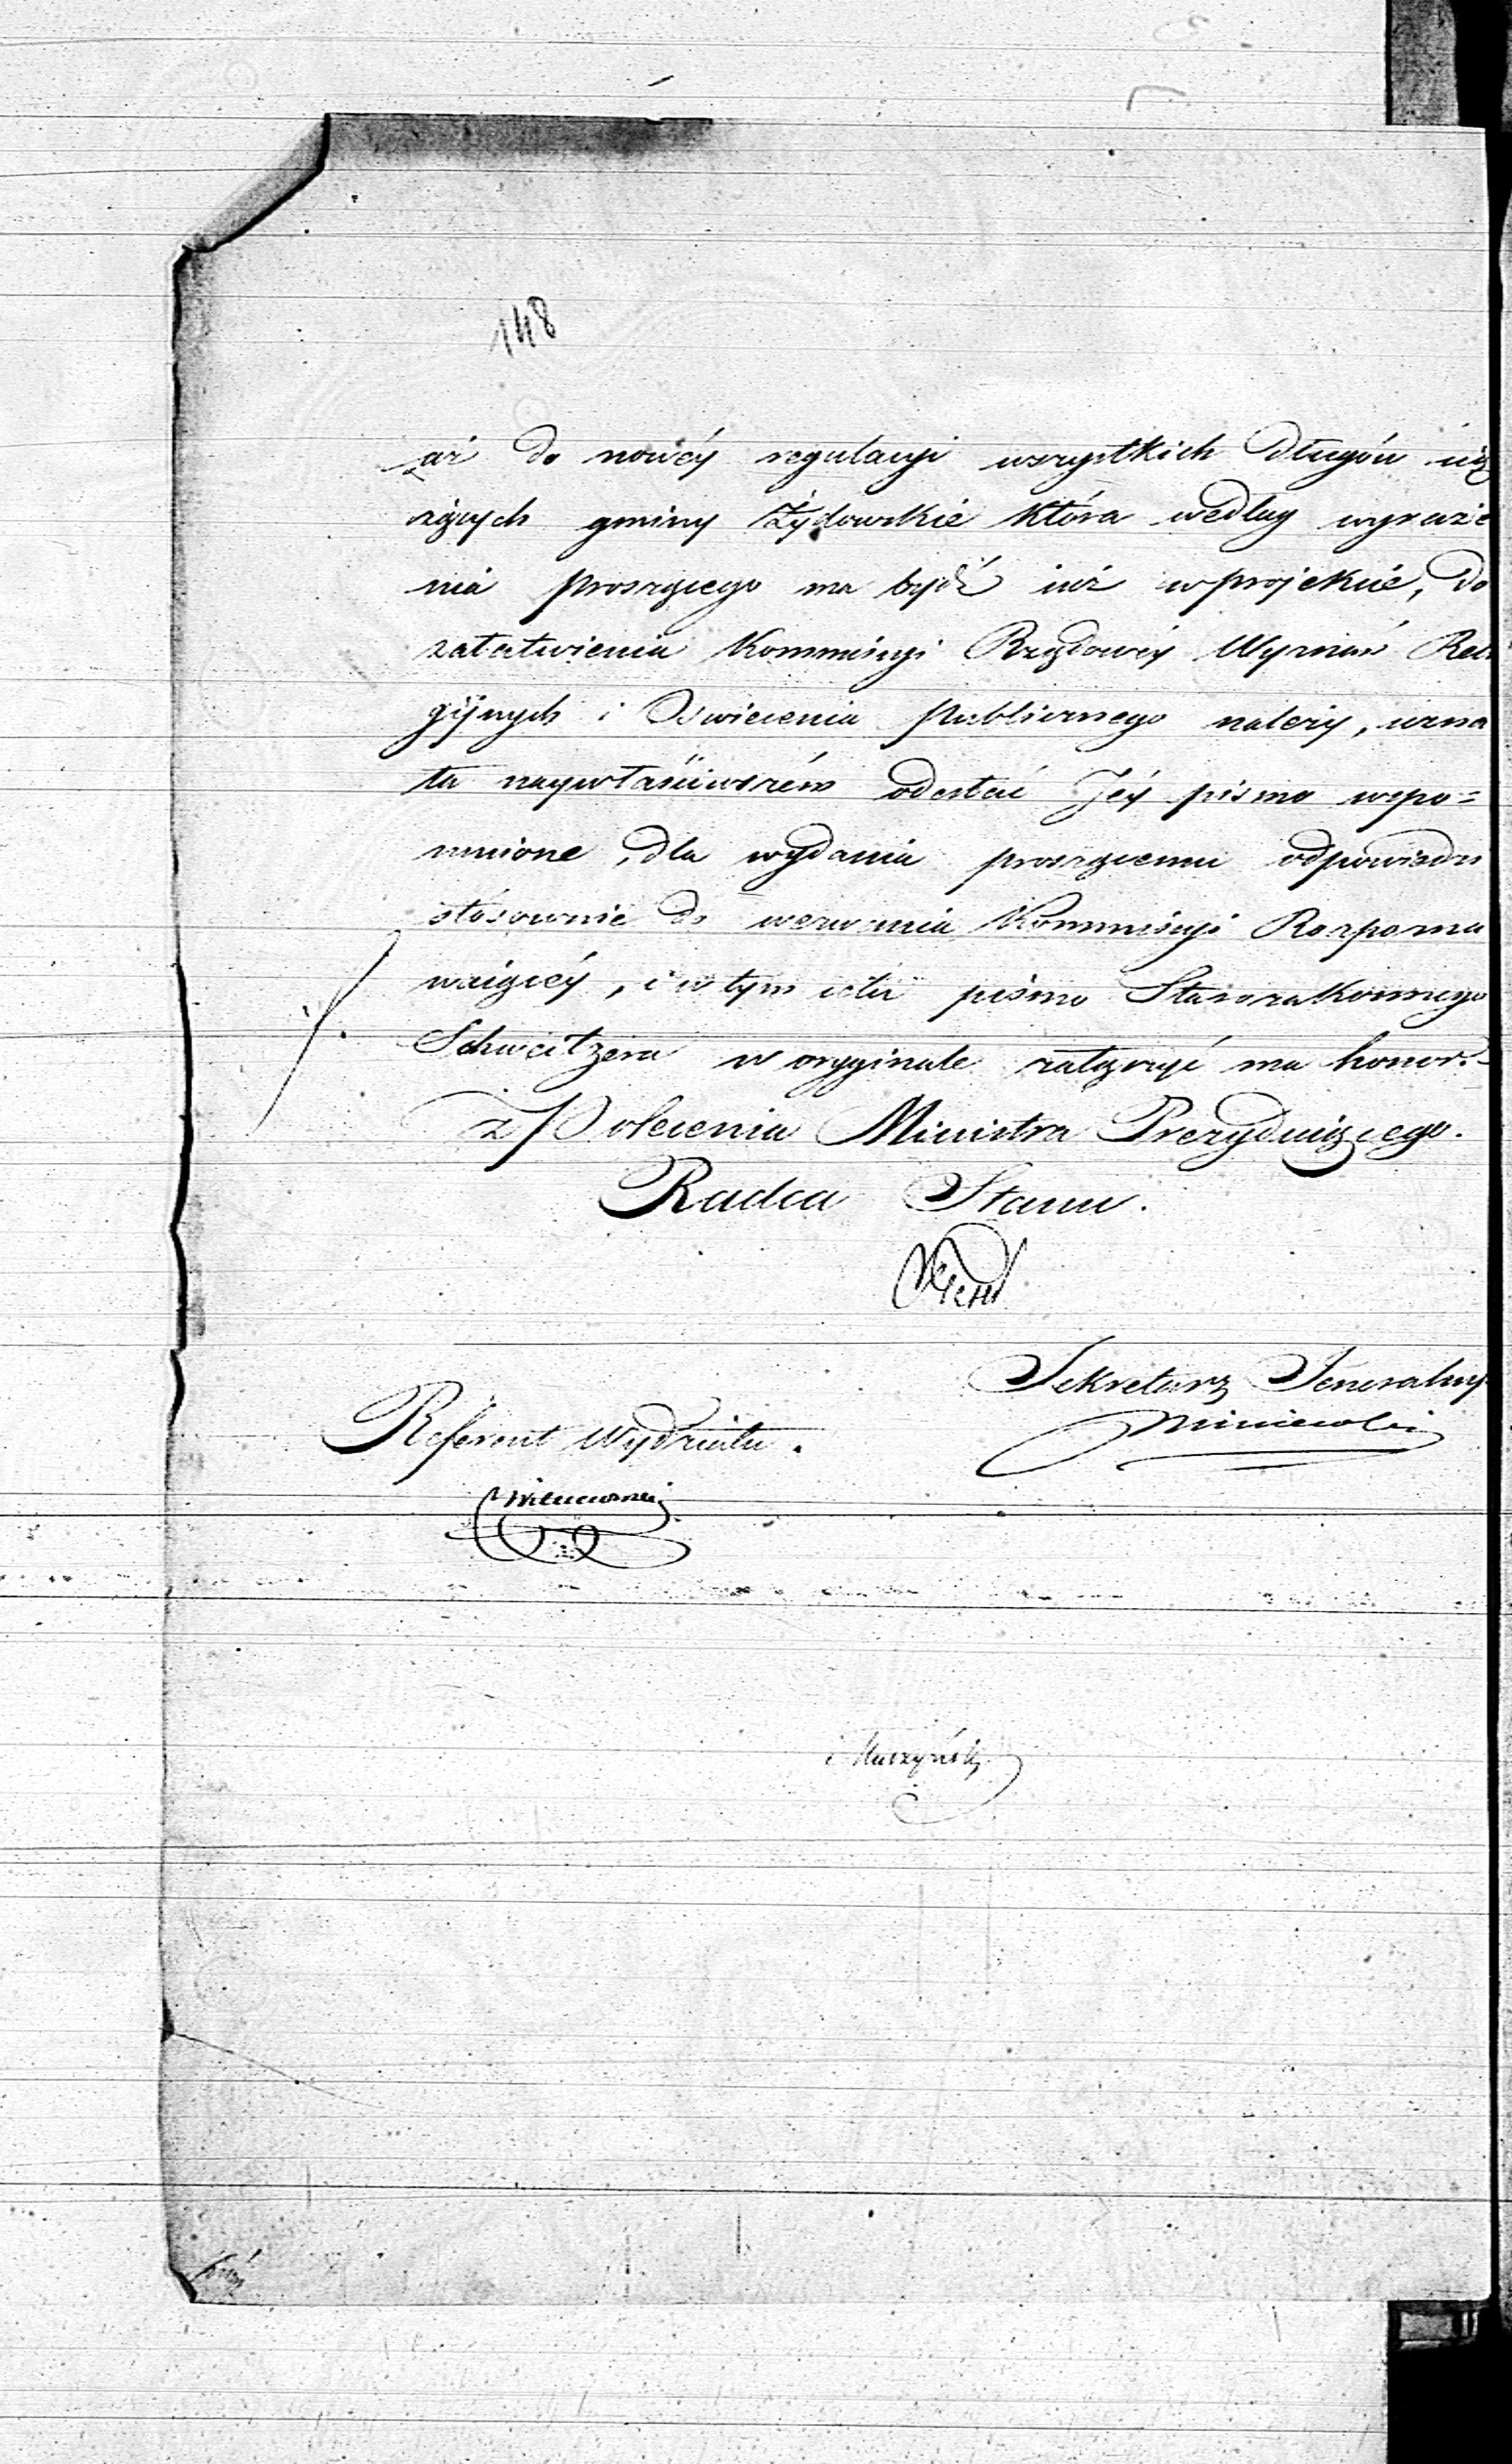 148
zaś do nowéy regulacyi wszystkich długów cią
żących gminy Żydowskie która według wyraże
nia proszącego ma bydź iuż w projekcie, do
załatwienia Kommissyi Rządowéy Wyznań Reli
gijnych i Oświecenia Publicznego należy, uzna
ła naywłaściwszém odesłać Jéy pismo wspo=
mnione, dla wydania proszącemu odpowiedzi
stósownie do wezwania Kommissyi Rozpozna
waiącéy, i w tym celu pismo Starozakonnego
Schweitzera w oryginale załączyć ma honor.
z Polecenia Ministra Prezyduiącego.
Radca Stanu.
Sekretarz Jeneralny
Referent Wydziału.